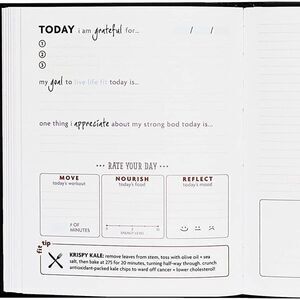 TODAY i am grateful for... / /
1
2
3
my goal to live life fit today is...
one thing i appreciate about my strong bod today is...
... RATE YOUR DAY ...
MOVE NOURISH REFLECT
today's workout today's food today's mood
# OF
MINUTES
ENERGY LEVEL
fit tip
KRISPY KALE: remove leaves from stem, toss with olive oil + sea
salt, then bake at 275 for 20 minutes, turning half-way through. crunch
antioxidant-packed kale chips to ward off cancer + lower cholesterol!